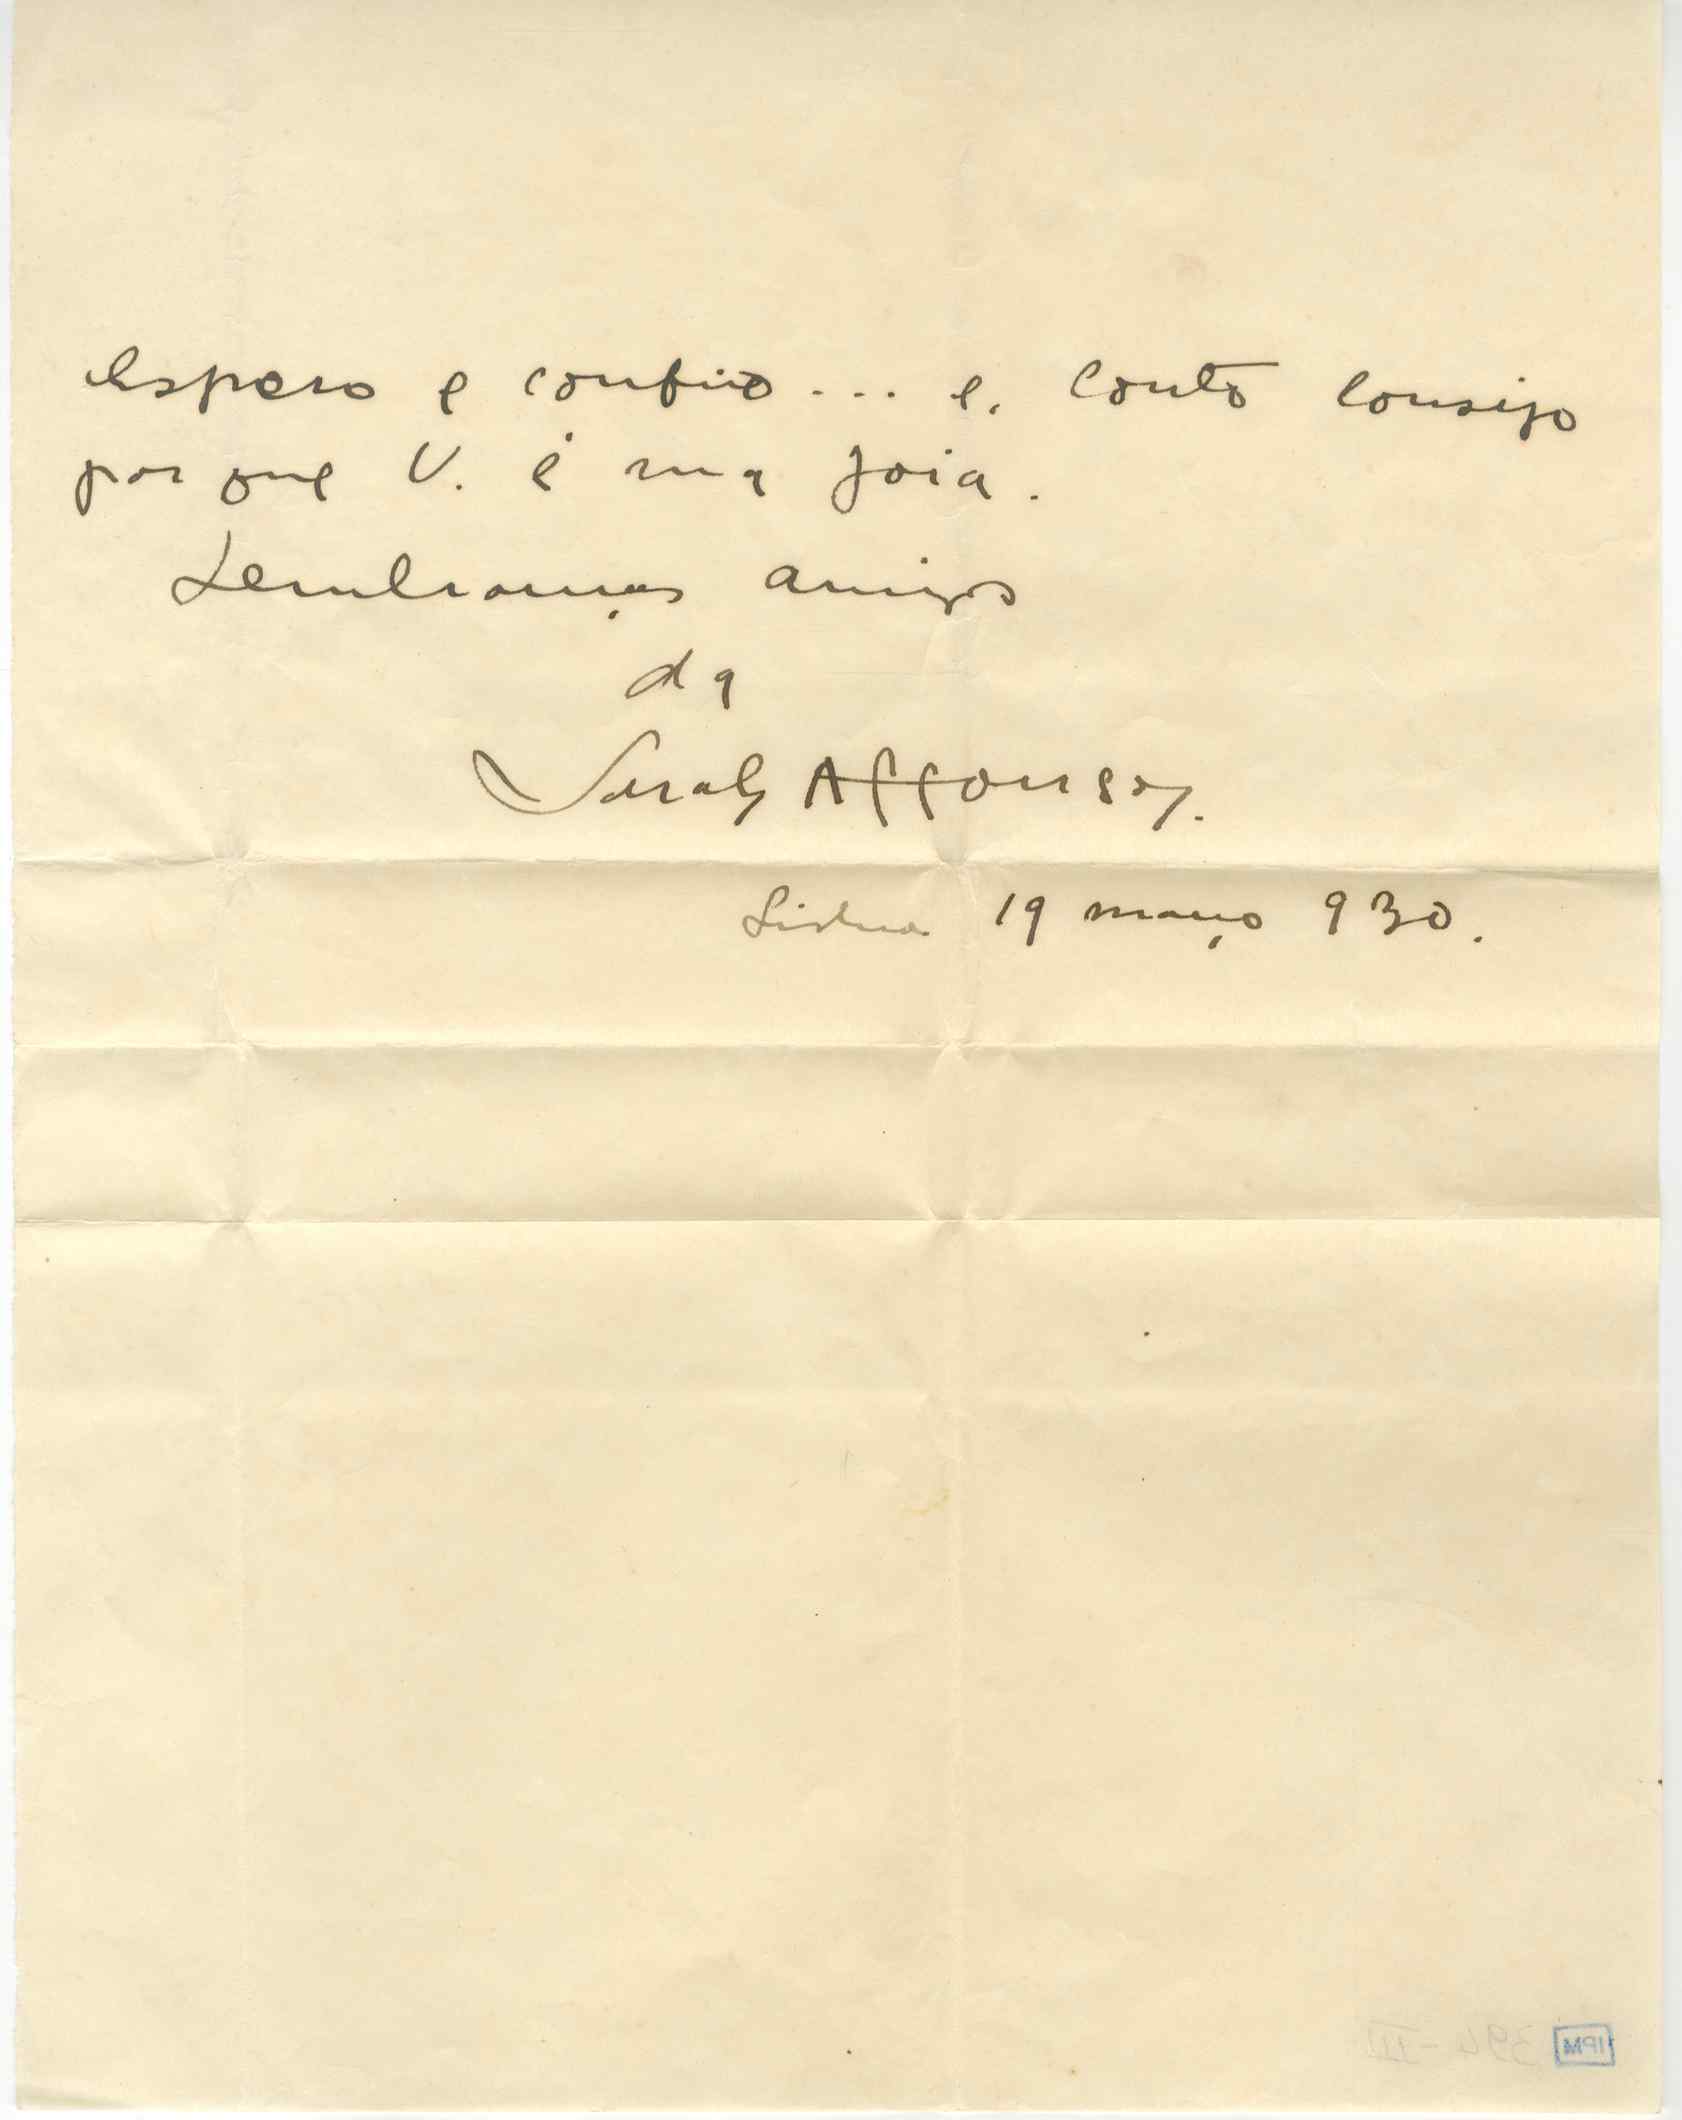 Espero e confio... e. conto consigo
por que V. é uma joia.
Lembranças amigas
da
Sarah Affonso.
Lisboa 19 março 930.
394-III IPM